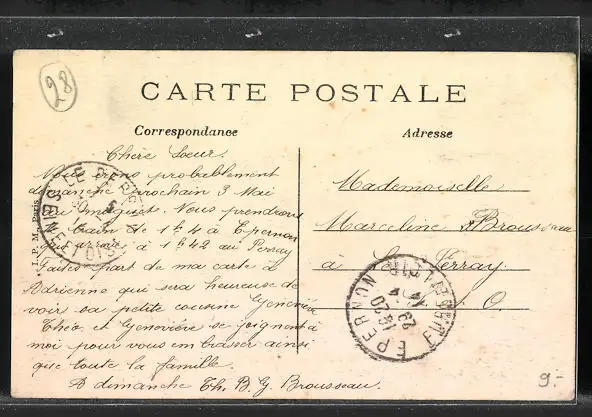 28
CARTE POSTALE
Correspondance
Adresse
Chère Soeur.
Nous irons probablement
dimanche prochain 3 Mai
au muguet. Nous prendrons
train de 1h 4 à Epernon
qui arrive à 1h 42 au Perray
Faites part de ma carte à
Adrienne qui sera heureuse de
voir sa petite cousine Geneviève
Théo et Geneviève se joignent à
moi pour vous embrasser ainsi
que toute la famille.
A dimanche Th. B. G. Brousseau.
Mademoiselle
Marceline Brousseau
à Le Perray
S. O.
I. P. M. Paris
LE PERRAY
SEINE ET OISE
EPERNON
EURE ET LOIR
9.-